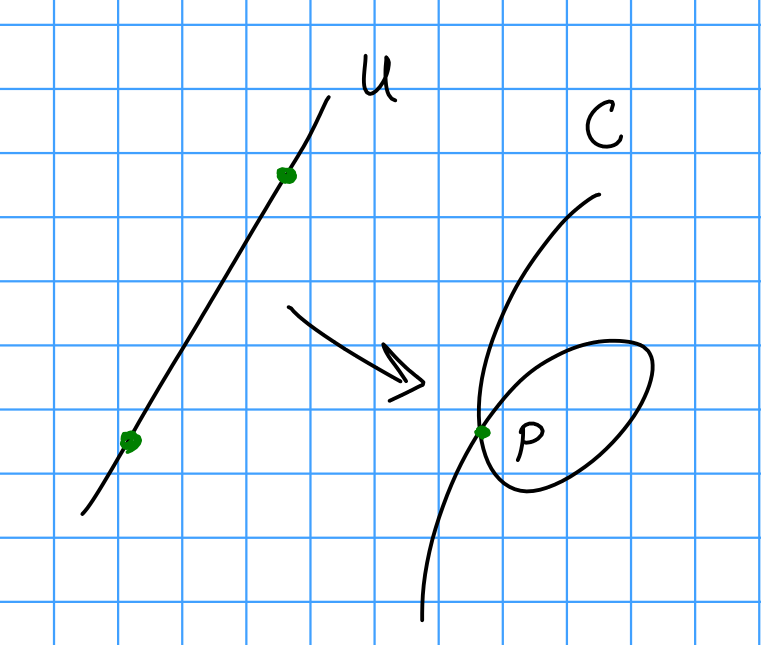 U
C
P